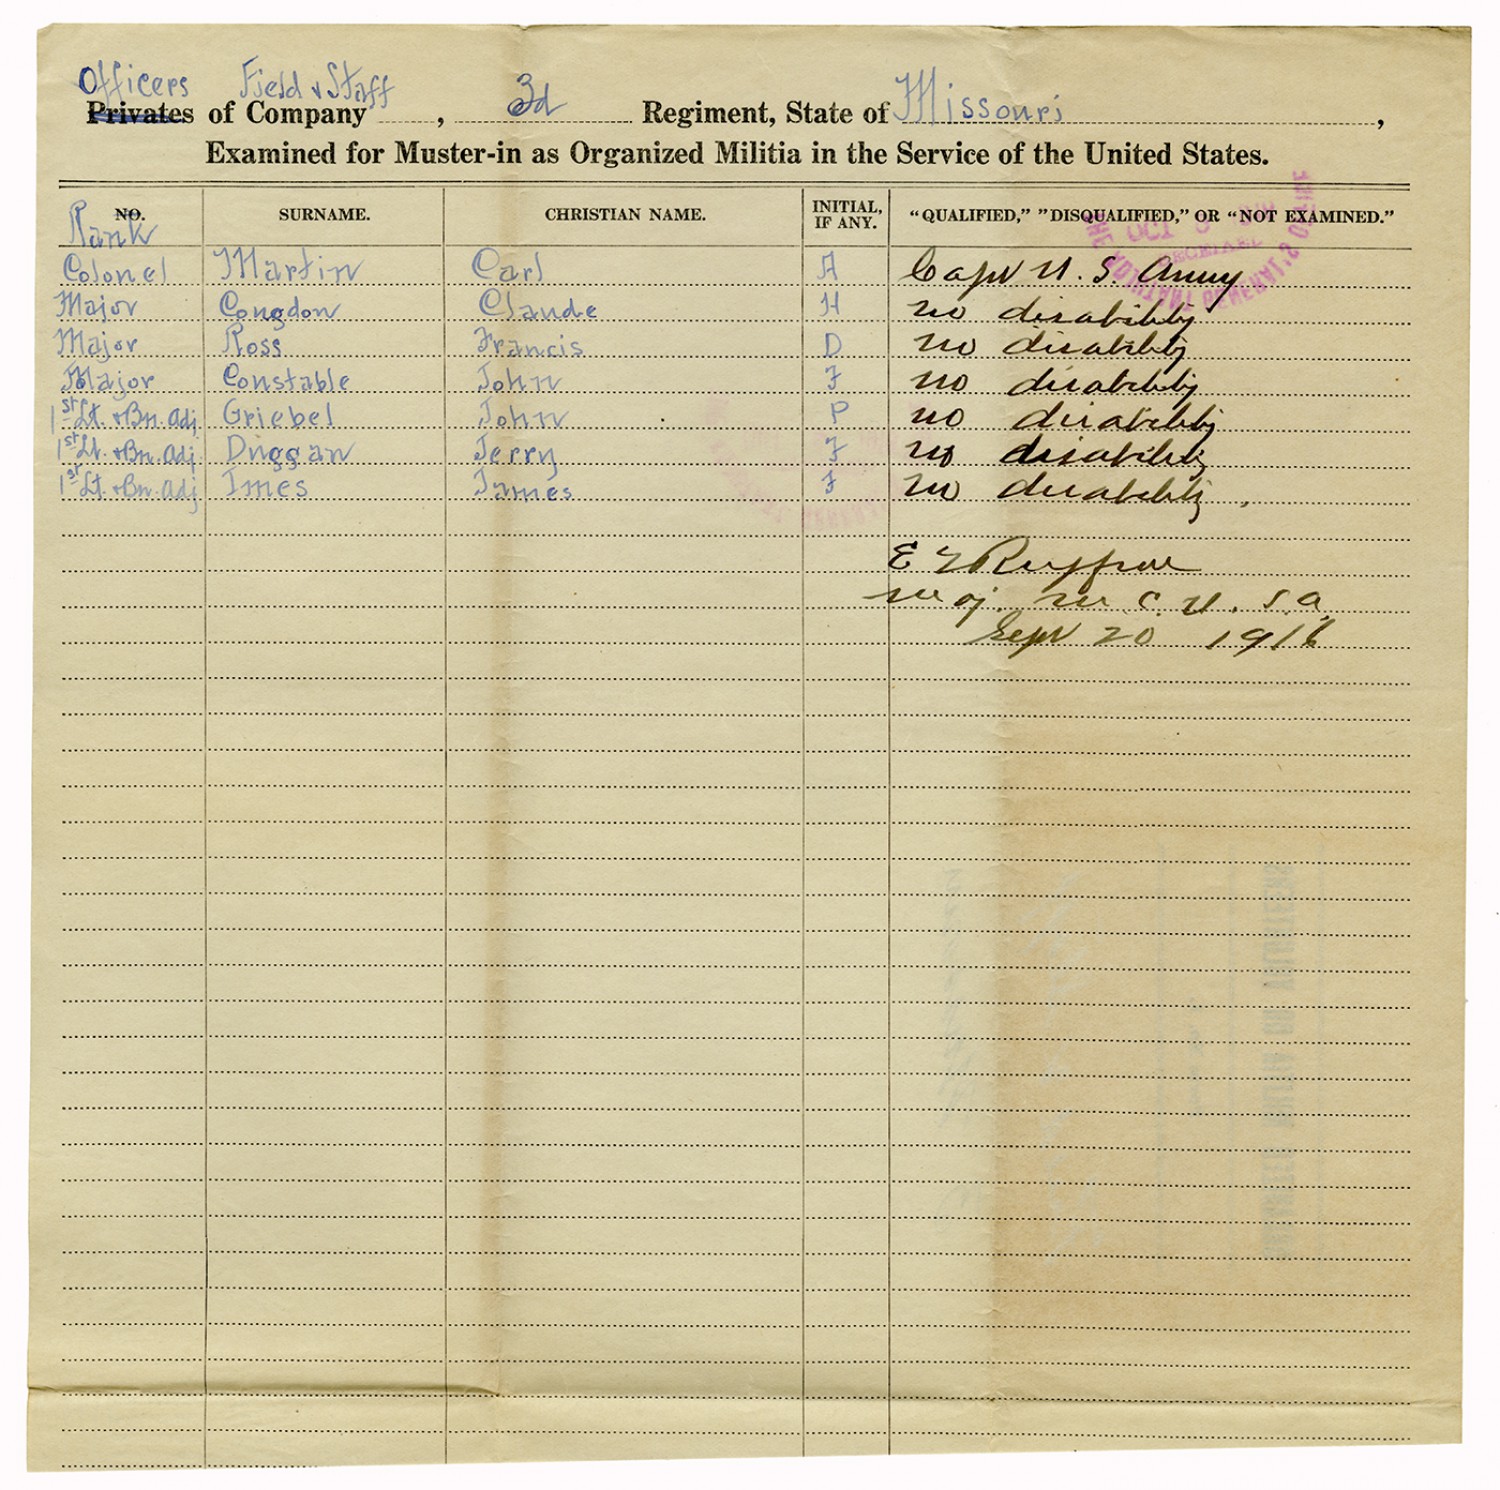 Officers Field & Staff
Privates of Company , 3d Regiment, State of Missouri ,
Examined for Muster-in as Organized Militia in the Service of the United States.
NO. SURNAME. CHRISTIAN NAME. INITIAL, IF ANY. "QUALIFIED," "DISQUALIFIED," OR "NOT EXAMINED."
Rank
Colonel Martin Carl A Capt U. S. Army
Major Congdon Claude H no disability
Major Ross Francis D no disability
Major Constable John F no disability
1st Lt. & Bn. Adj. Griebel John P no disability
1st Lt. & Bn. Adj. Duggan Jerry F no disability
1st Lt. & Bn. Adj Imes James F no disability
E
Maj. M. C. U. S. A.
Sept 20 1916
OCT
RECEIVED
THE ADJUTANT GENERAL'S OFFICE